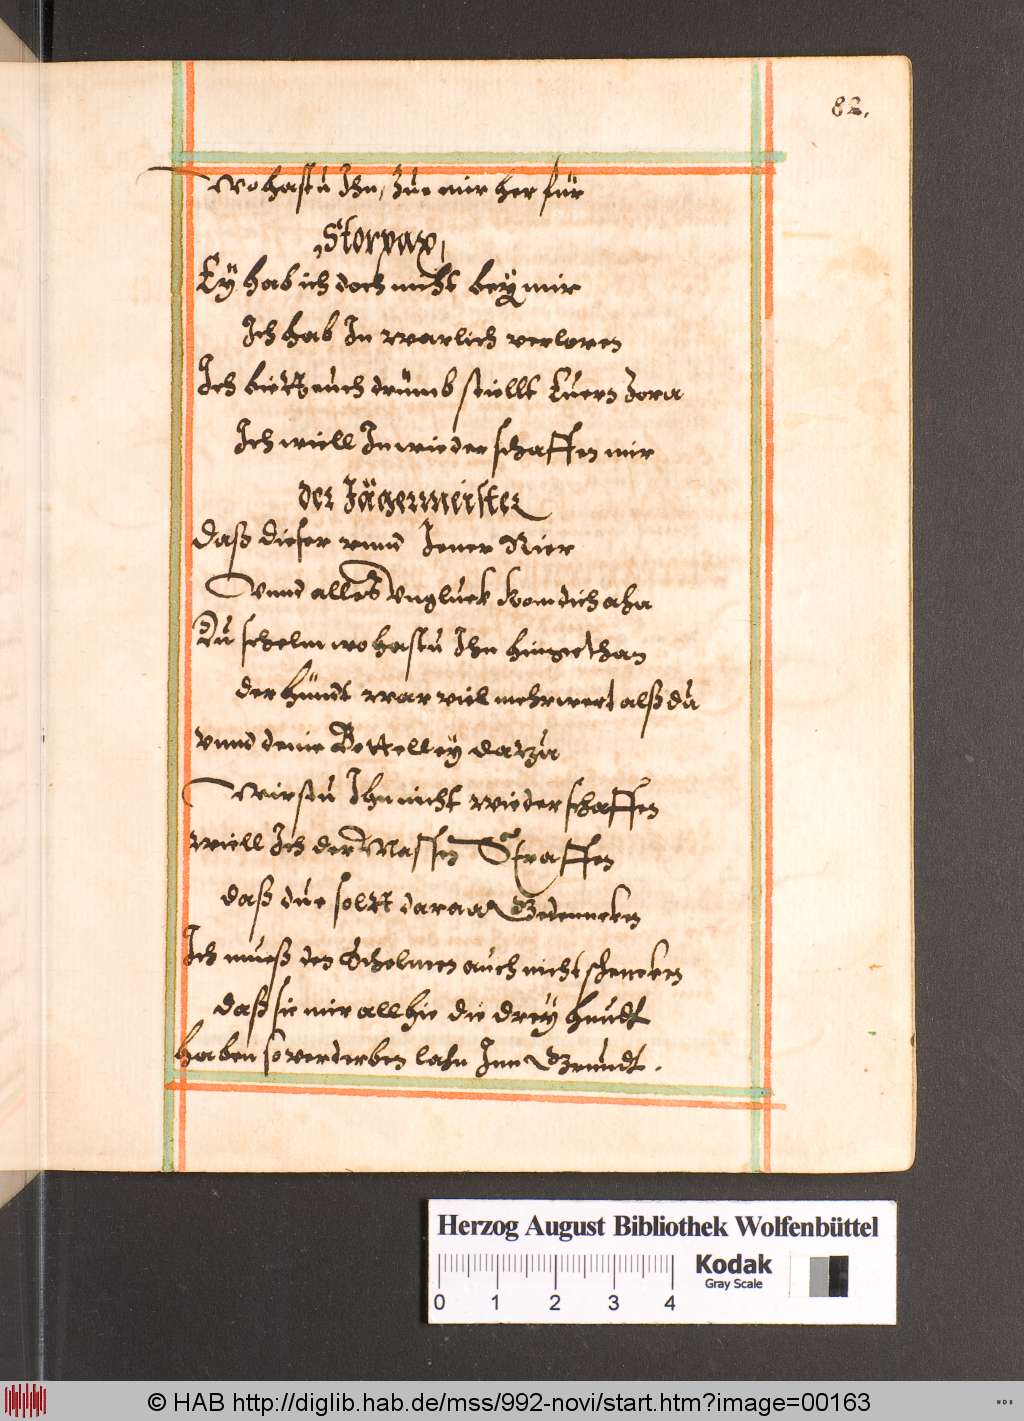 82.
Wo hastu Ihn, Zue mir her für
Storvax,
Ey hab ich doch nicht beÿ mir
Ich hab In warlich verloren
Ich bitt euch drumb stiellt Euern Zorn
Ich wiell In wieder schaffen mir
der Jägermeister
Daß dieser vnnd Jener Rier
Vnnd alles Vngluck kom dich ahn
Du schelm wo hastu Ihn hingethan
der hundt war viel mehr wert alß du
vnnd deine Bettelleÿ darzu
Wirstu Ihn nicht wieder schaffen
Wiell Ich der Massen Straffen
daß due soltt daran Gedenncken
Ich mueß den Schelmen auch nicht schencken
daß sie mir allhie die dreÿ hundt
haben so verderben lasn Inn Grundt.
Herzog August Bibliothek Wolfenbüttel
Kodak
Gray Scale
0 1 2 3 4
© HAB http://diglib.hab.de/mss/992-novi/start.htm?image=00163